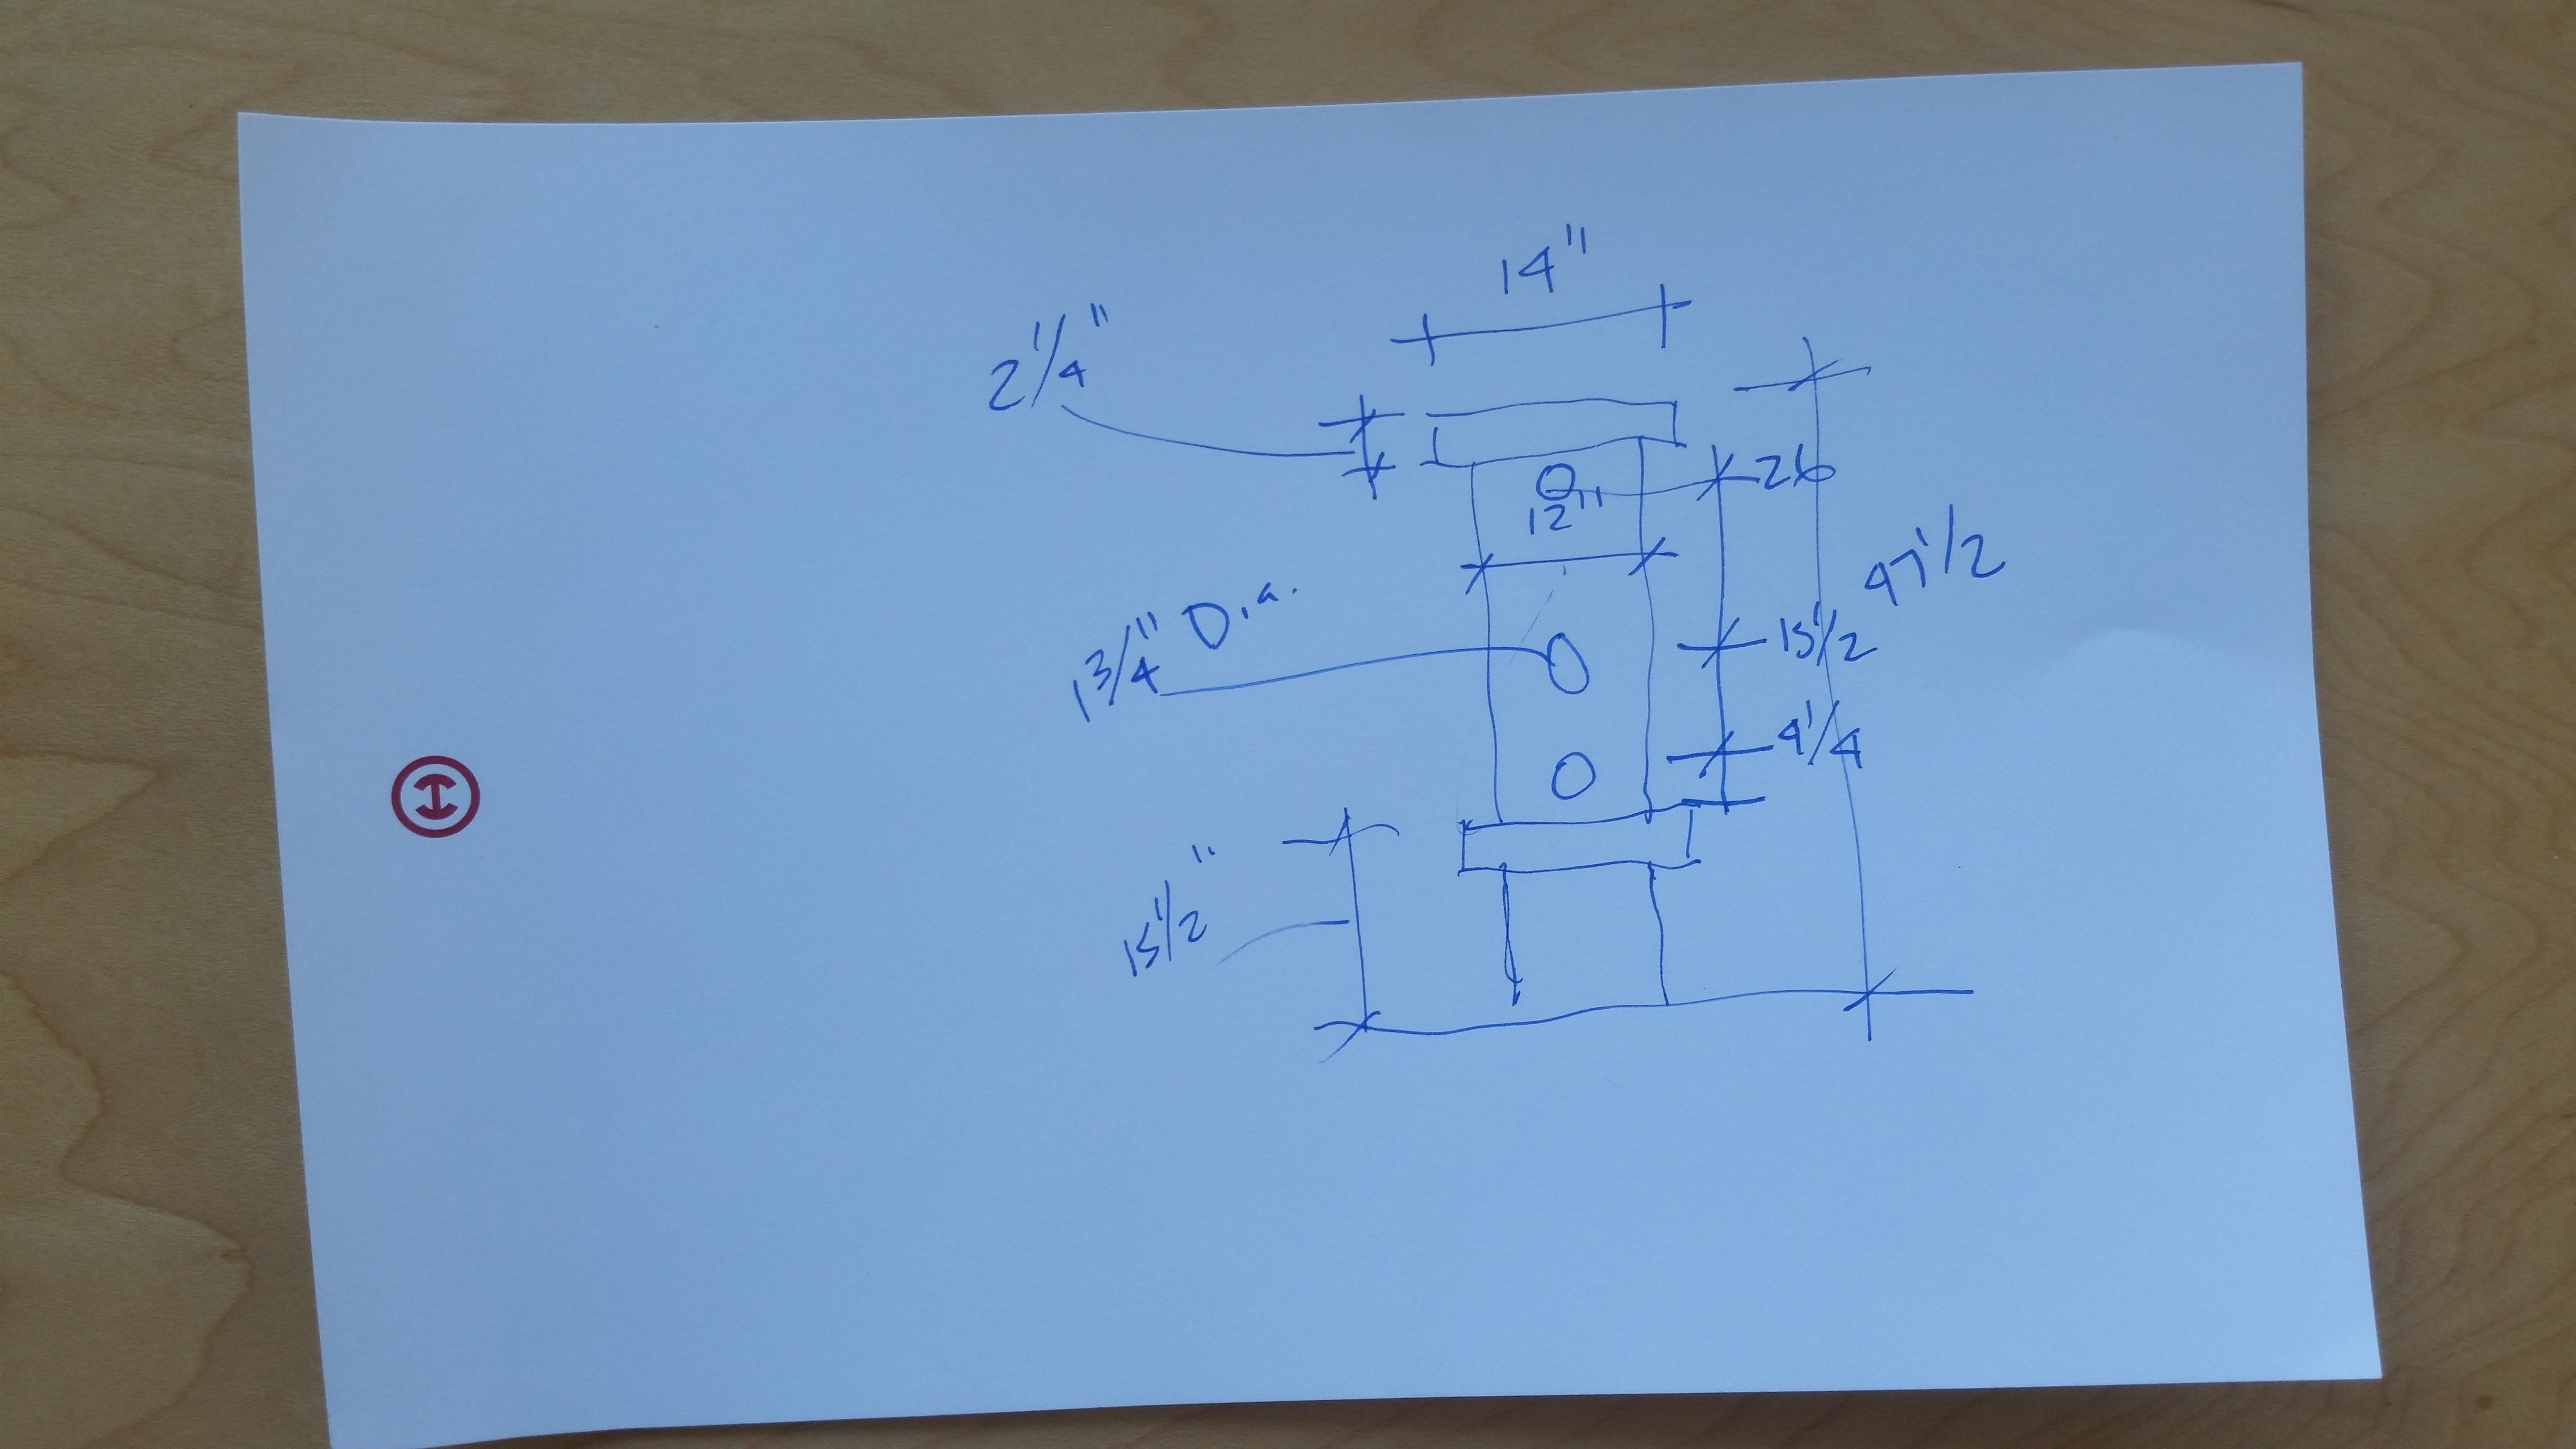 14"
2 1/4"
26
12"
47 1/2
1 3/4" Dia.
15 1/2
4 1/4
15 1/2"